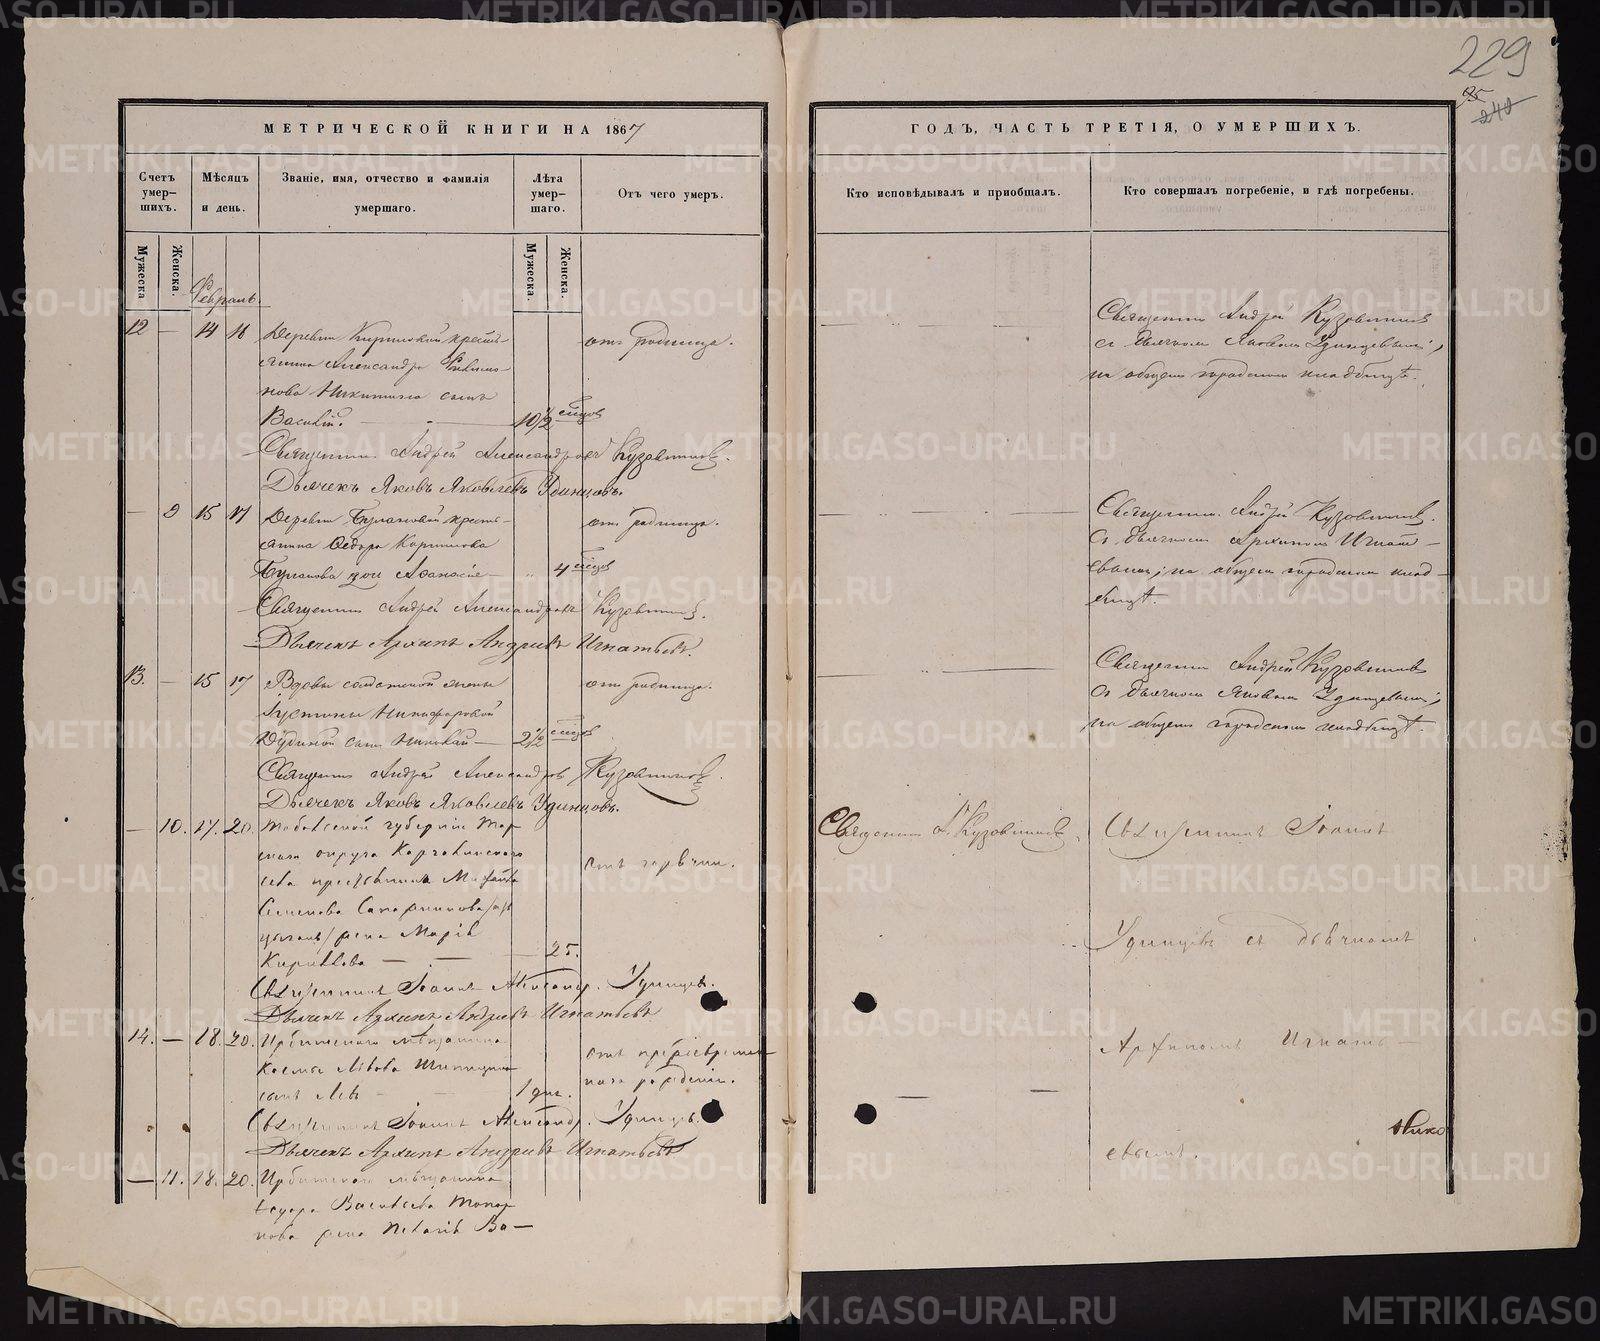 229
95
240
МЕТРИЧЕСКОЙ КНИГИ НА 1867
ГОДЪ, ЧАСТЬ ТРЕТІЯ, О УМЕРШИХЪ.
Счетъ умер-шихъ.
Мѣсяцъ и день.
Званіе, имя, отчество и фамилія умершаго.
Лѣта умер-шаго.
Отъ чего умеръ.
Кто исповѣдывалъ и пріобщалъ.
Кто совершалъ погребеніе, и гдѣ погребены.
Мужеска
Женска.
Мужеска.
Женска.
Февраль.
12 — 14 16 Деревни Кириловой кресть-
янина Александра
нова Никитина сынъ
Василій. — 10½
отъ родимца.
Священникъ Андрей Кузовников
съ дьячкомъ Яковомъ Удинцевымъ;
на общемъ городскомъ кладбищѣ.
Священникъ Андрей Александровъ Кузовниковъ.
Дьячекъ Яковъ Яковлевъ Удинцовъ.
— 9 15 17 Деревни Булановой кресть-
янина Ѳедора Корнилова
Буланова дочь Афанасія — 4
отъ родимца.
Священникъ Андрей Кузовниковъ.
съ дьячкомъ Архипомъ Игнать-
евымъ; на общемъ городскомъ клад-
бищѣ.
Священникъ Андрей Александровъ Кузовниковъ.
Дьячекъ Архипъ Андреевъ Игнатьевъ.
13. — 15 17 Вдовы солдатской жены
Іустины Никифоровой
сынъ Николай — 2½
отъ родимца.
Священникъ Андрей Кузовников
съ дьячкомъ Яковомъ Удинцевымъ;
на общемъ городскомъ кладбищѣ.
Священникъ Андрей Александровъ Кузовниковъ.
Дьячекъ Яковъ Яковлевъ Удинцовъ.
— 10. 17. 20. Тобольской губерніи
округа
Семенова
жена Марія
Кирилова — 25.
отъ горячки.
Священникъ А. Кузовниковъ.
Священникъ Іоаннъ
Удинцевъ съ дьячкомъ
Священникъ Іоаннъ Александр. Удинцевъ.
Дьячекъ Архипъ Андреевъ Игнатьевъ
14. — 18. 20. Ирбитскаго мѣщанина
Космы Львова
сынъ Левъ — 1 дня.
отъ преждевремен-
наго рожденія.
Архипомъ Игнать-
евымъ.
Священникъ Іоаннъ Александр. Удинцевъ.
Дьячекъ Архипъ Андреевъ Игнатьевъ
— 11. 18. 20. Ирбитскаго мѣщанина
Ѳедора Васильева
нова жена Ва—
Нико